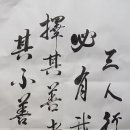 三人行
必有我
擇其善者
其不善